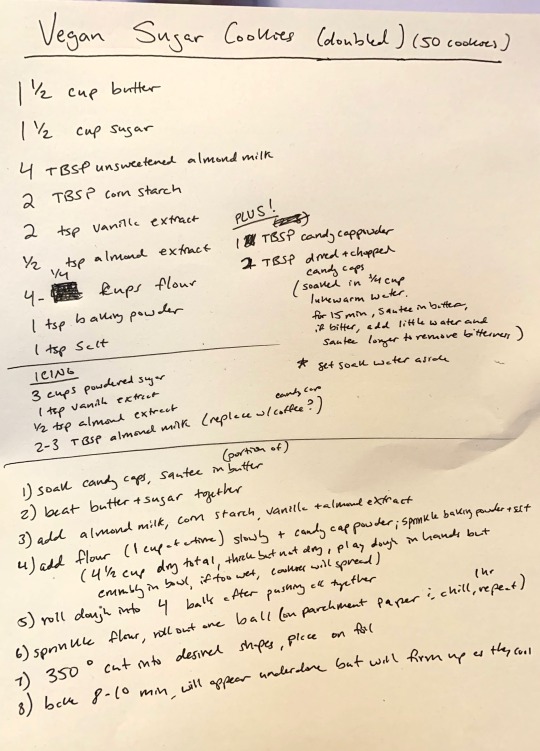 Vegan Sugar Cookies (doubled) (50 cookies)
1 1/2 cup butter
1 1/2 cup sugar
4 TBSP unsweetened almond milk
2 TBSP corn starch
2 tsp vanilla extract
1/2 tsp almond extract
4 - 1/4 cups flour
1 tsp baking powder
1 tsp salt
PLUS!
1 TBSP candy cap powder
2 TBSP dried + chopped
candy caps
(soaked in 3/4 cup
lukewarm water.
for 15 min, sautee in butter,
if bitter, add little water and
sautee longer to remove bitterness)
* set soak water aside
ICING
3 cups powdered sugar
1 tsp vanilla extract
1/2 tsp almond extract
candy cap
2-3 TBSP almond milk (replace w/ coffee?)
(portion of)
1) soak candy caps, sautee in butter
2) beat butter + sugar together
3) add almond milk, corn starch, vanilla + almond extract
4) add flour (1 cup at a time) slowly + candy cap powder; sprinkle baking powder + salt
(4 1/2 cup dry total, thick but not dry, play dough in hands but
crumbly in bowl, if too wet, cookies will spread)
5) roll dough into 4 balls after pushing all together
1 hr
6) sprinkle flour, roll out one ball (on parchment paper; chill, repeat)
7) 350° cut into desired shapes, place on foil
8) bake 8-10 min, will appear underdone but will firm up as they cool